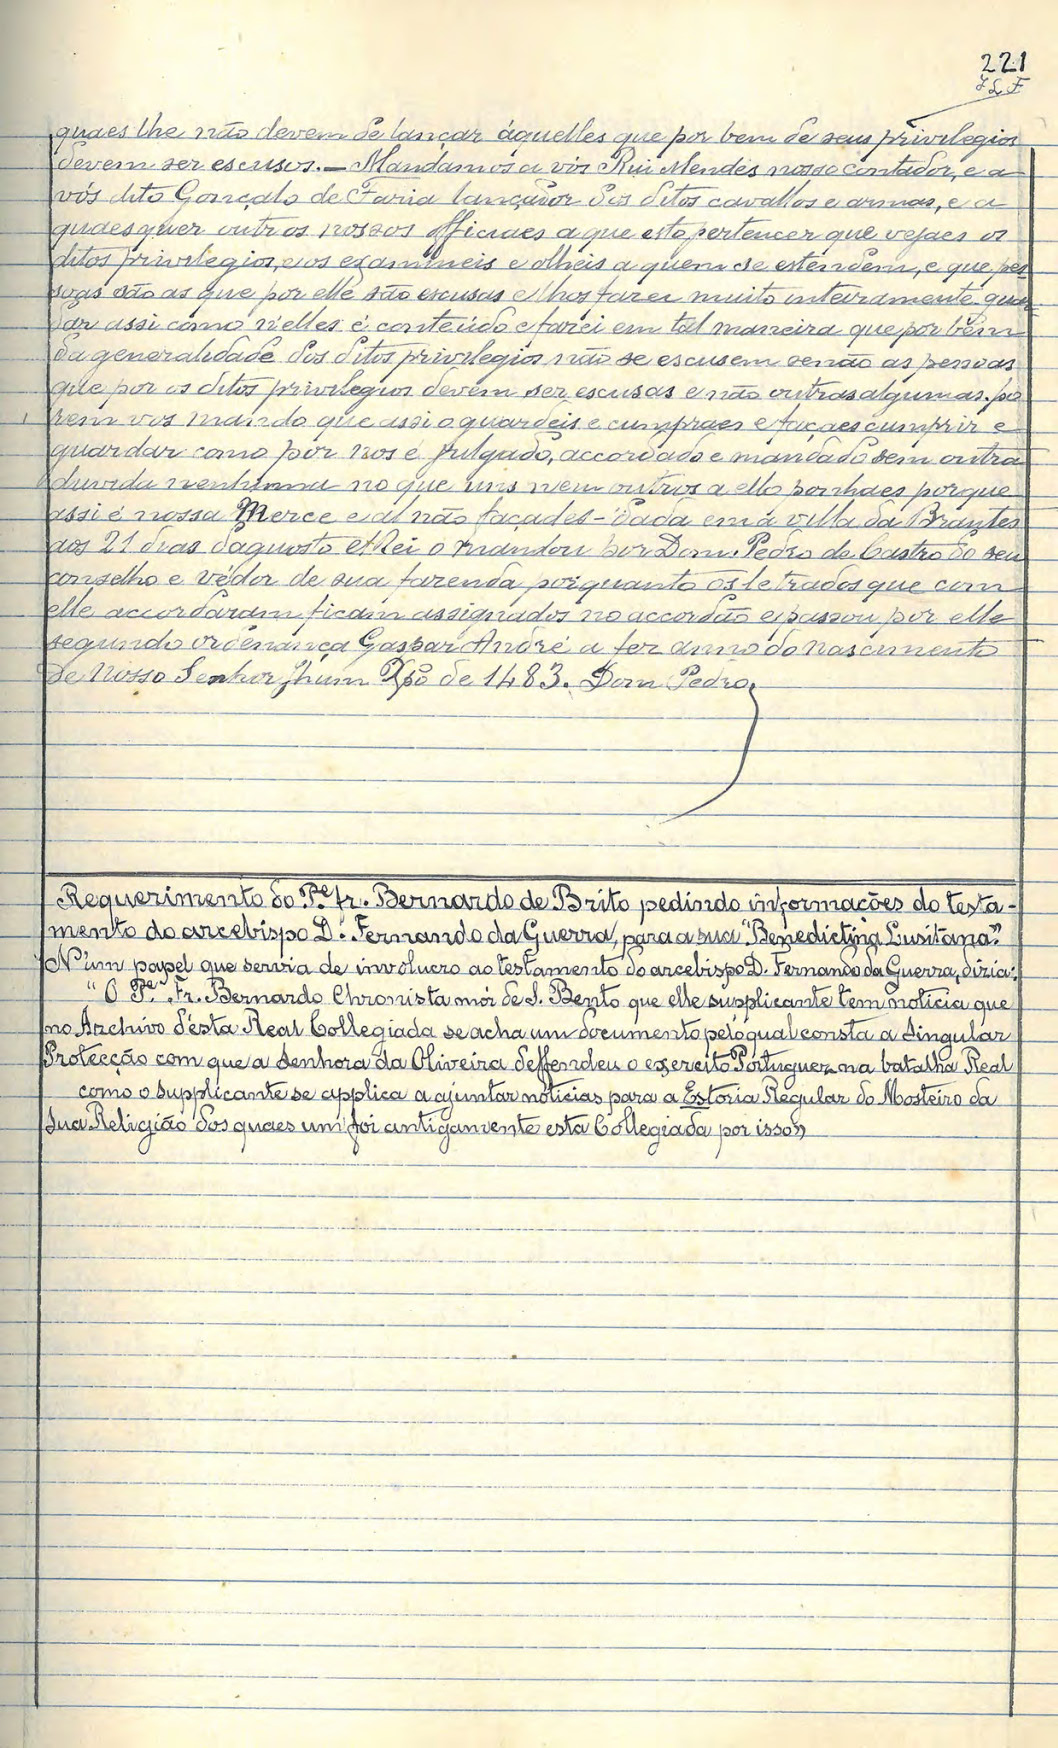 221
J L F
quaes lhe não devem de lançar áquelles que por bem de seus privilegios
devem ser escusos. — Mandamos a vós Rui Mendes nosso contador, e a
vós dito Gonçalo de Faria lançador dos ditos cavallos e armas, e a
quaesquer outros nossos officiaes a que esto pertencer que vejaes os
ditos privilegios, e os examineis e olheis a quem se estendem, e que pes
soas são as que por elle são escusas e lhos farei muito inteiramente guar
dar assi como n'elles é conteúdo e farei em tal maneira que por bem
da generalidade dos ditos privilegios não se escusem senão as pessoas
que por os ditos privilegios devem ser escusas e não outras algumas. po
rem vos mando que assi o guardeis e cumpraes e façaes cumprir e
guardar como por nos é julgado, accordado e mandado sem outra
duvida nenhuma no que uns nem outros a ello ponhaes porque
assi é nossa Merce e al não façades - Dada em a villa da Brantes
aos 21 dias dagosto elRei o mandou por Dom Pedro de Castro do seu
conselho e védor de sua fazenda porquanto os letrados que com
elle accordaram ficam assignados no accordão e passou por elle
segundo ordenança Gaspar André a fez anno do nascimento
de Nosso Senhor Jhum Xpõ de 1483. Dom Pedro,
Requerimento do Pe. fr. Bernardo de Brito pedindo informações do testa-
mento do arcebispo D. Fernando da Guerra, para a sua "Benedictina Lusitana."
N'um papel que servia de involucro ao testamento do arcebispo D. Fernando da Guerra, dizia:
"O Pe. Fr. Bernardo Chronista mór de S. Bento que elle supplicante tem noticia que
no Archivo d'ésta Real Collegiada se acha um documento pelo qual consta a Singular
Protecção com que a Senhora da Oliveira deffendeu o exercito Portuguez na batalha Real
como o supplicante se applica a ajuntar noticias para a Estoria Regular do Mosteiro da
Sua Religião dos quaes um foi antigamente esta Collegiada por isso"